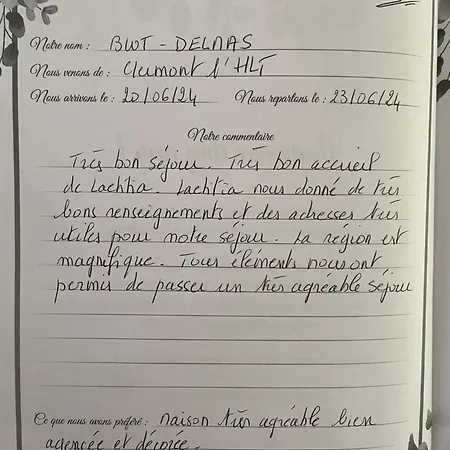 Notre nom : BWT - DELMAS
Nous venons de : Clermont l'HLT
Nous arrivons le : 20/06/24 Nous repartons le : 23/06/24
Notre commentaire
Très bon séjour. Très bon accueil
de Laetitia. Laetitia nous donné de très
bons renseignements et des adresses très
utiles pour notre séjour. La région est
magnifique. Tous éléments nous ont
permis de passer un très agréable séjour
Ce que nous avons préféré : maison très agréable bien
agencée et décorée.